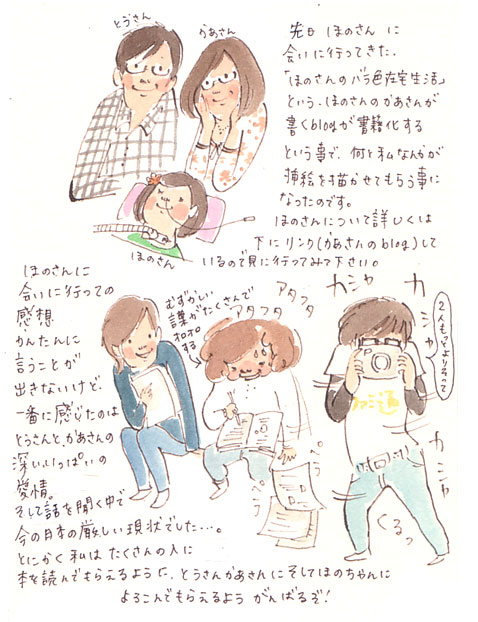 とうさん
かあさん
先日 ほのさん に
会いに行ってきた.
「ほのさんのバラ色在宅生活」
という、ほのさんのかあさんが
書くblogが書籍化する
という事で、何と私なんかが
挿絵を描かせてもらう事に
なったのです。
ほのさんについて詳しくは
下にリンク(かあさんのblog)して
いるので見に行ってみて下さい。
ほのさん
ほのさんに
会いに行っての
感想
かんたんに
言うことが
出きないけど、
一番に感じたのは
とうさんと、かあさんの
深い、いっぱいの
愛情。
そして話を聞く中で
今の日本の厳しい現状でした…。
とにかく私は たくさんの人に
本を読んでもらえるように、とうさんかあさんに そしてほのちゃんに
よろこんでもらえるよう がんばるぞ!
むずかしい
言葉がたくさんで
ポロポロ
する
アタフタ
アタフタ
カシャ
カシャ
カシャ
2人もっとよりそって
ファミ通
くるっ